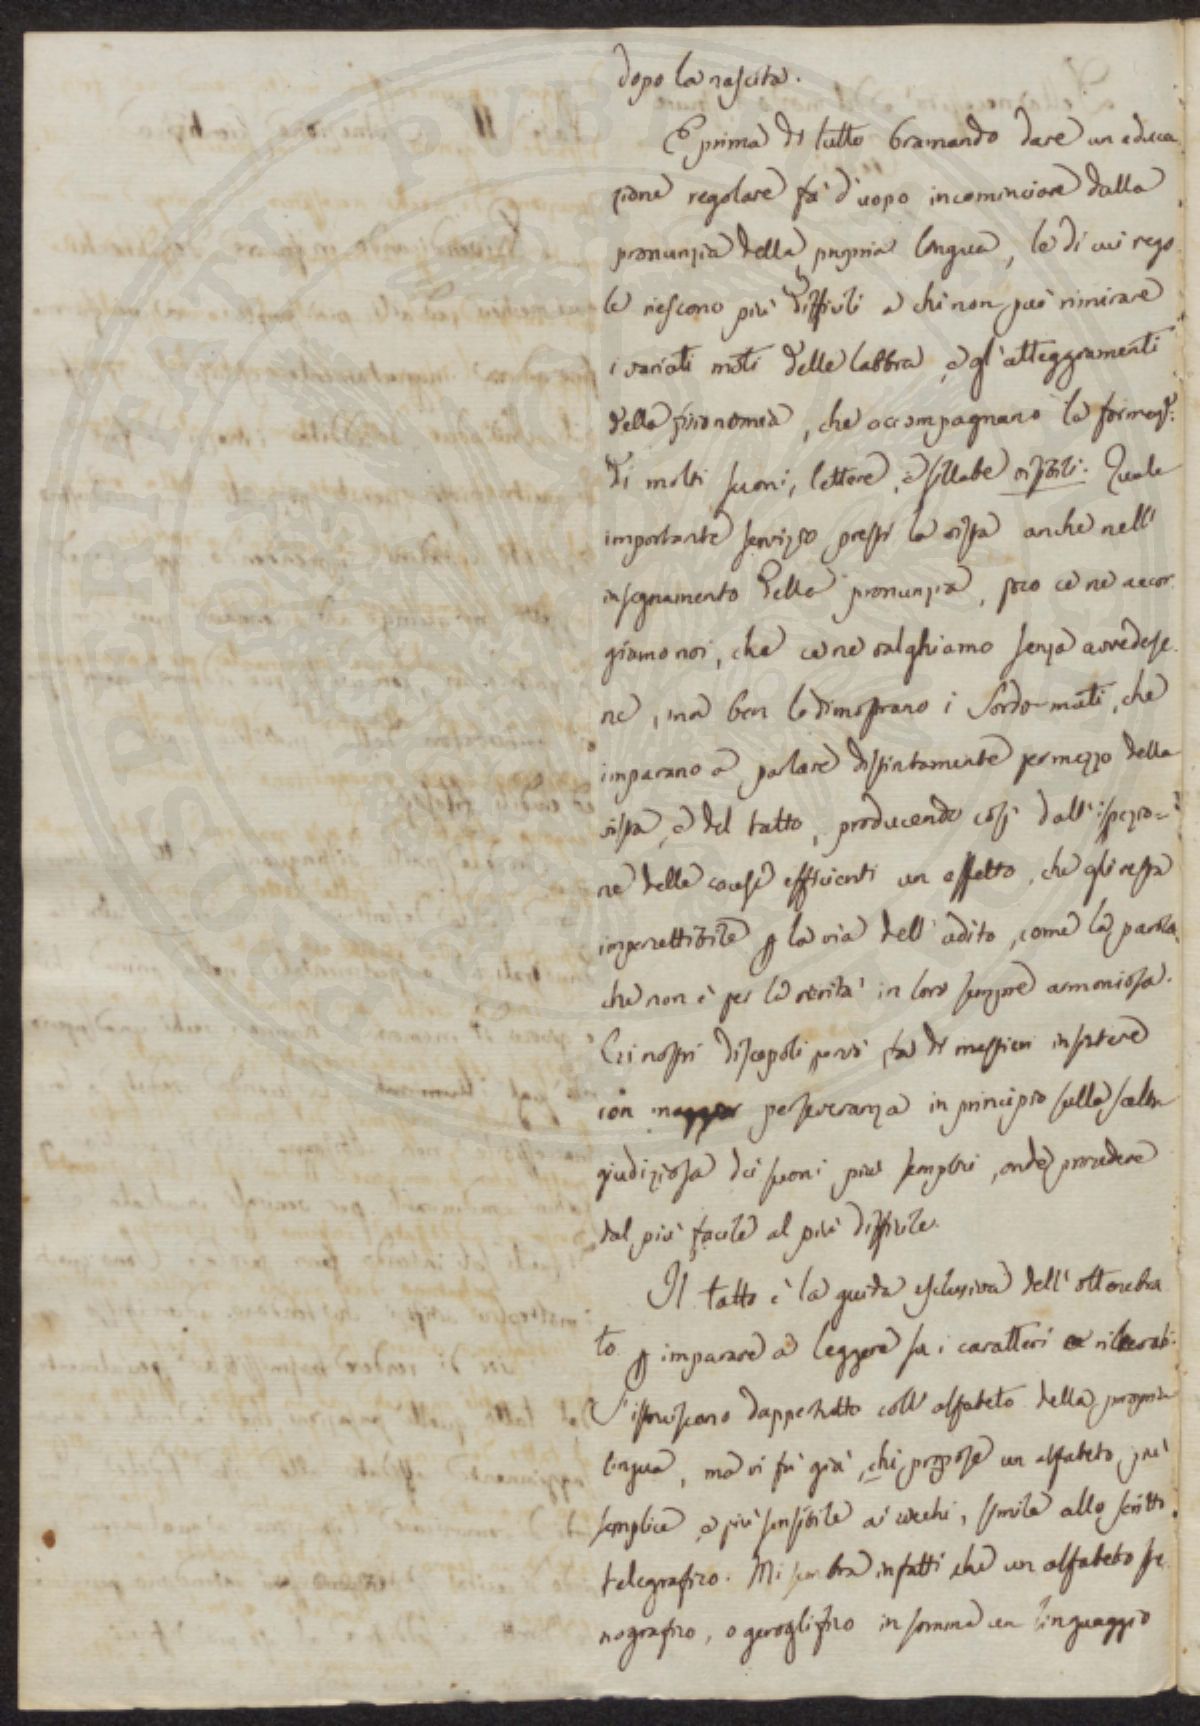 dopo la nascita.
E prima di tutto bramando dare un educa
zione regolare fa d'uopo incominciare dalla
pronunzia della propria lingua, le di cui rego
le riescono più difficili a chi non può rimirare
i variati moti delle labbra, e gl'atteggiamenti
della fisionomia, che accompagnano la formaz.e
di molti suoni, lettere, e sillabe visibili. Quale
importante servizio presti la vista anche nell'
insegnamento della pronunzia, poco ce ne accor
giamo noi, che ce ne valghiamo senza avvederse
ne, ma ben lo dimostrano i Sordo-muti, che
imparano a parlare distintamente per mezzo della
vista, e del tatto, producendo così dall'ispezio=
ne delle cause efficienti un effetto, che gli resta
impercettibile p la via dell'udito, come la parola,
che non è per la verità in loro sempre armoniosa.
Coi nostri discepoli perciò fa di mestieri insistere
con maggior perseveranza in principio sulla scelta
giudiziosa dei suoni più semplici, onde procedere
dal più facile al più difficile.
Il tatto è la guida esclusiva dell'ottenebra
to p imparare a leggere su i caratteri rilevati.
S'istruiscono dappertutto coll'alfabeto della propria
lingua, ma vi fù già, chi propose un alfabeto più
semplice e più sensibile ai ciechi, simile allo scritto
telegrafico. Mi sembra infatti che un alfabeto ste
nografico, o geroglifico in somma un linguaggio